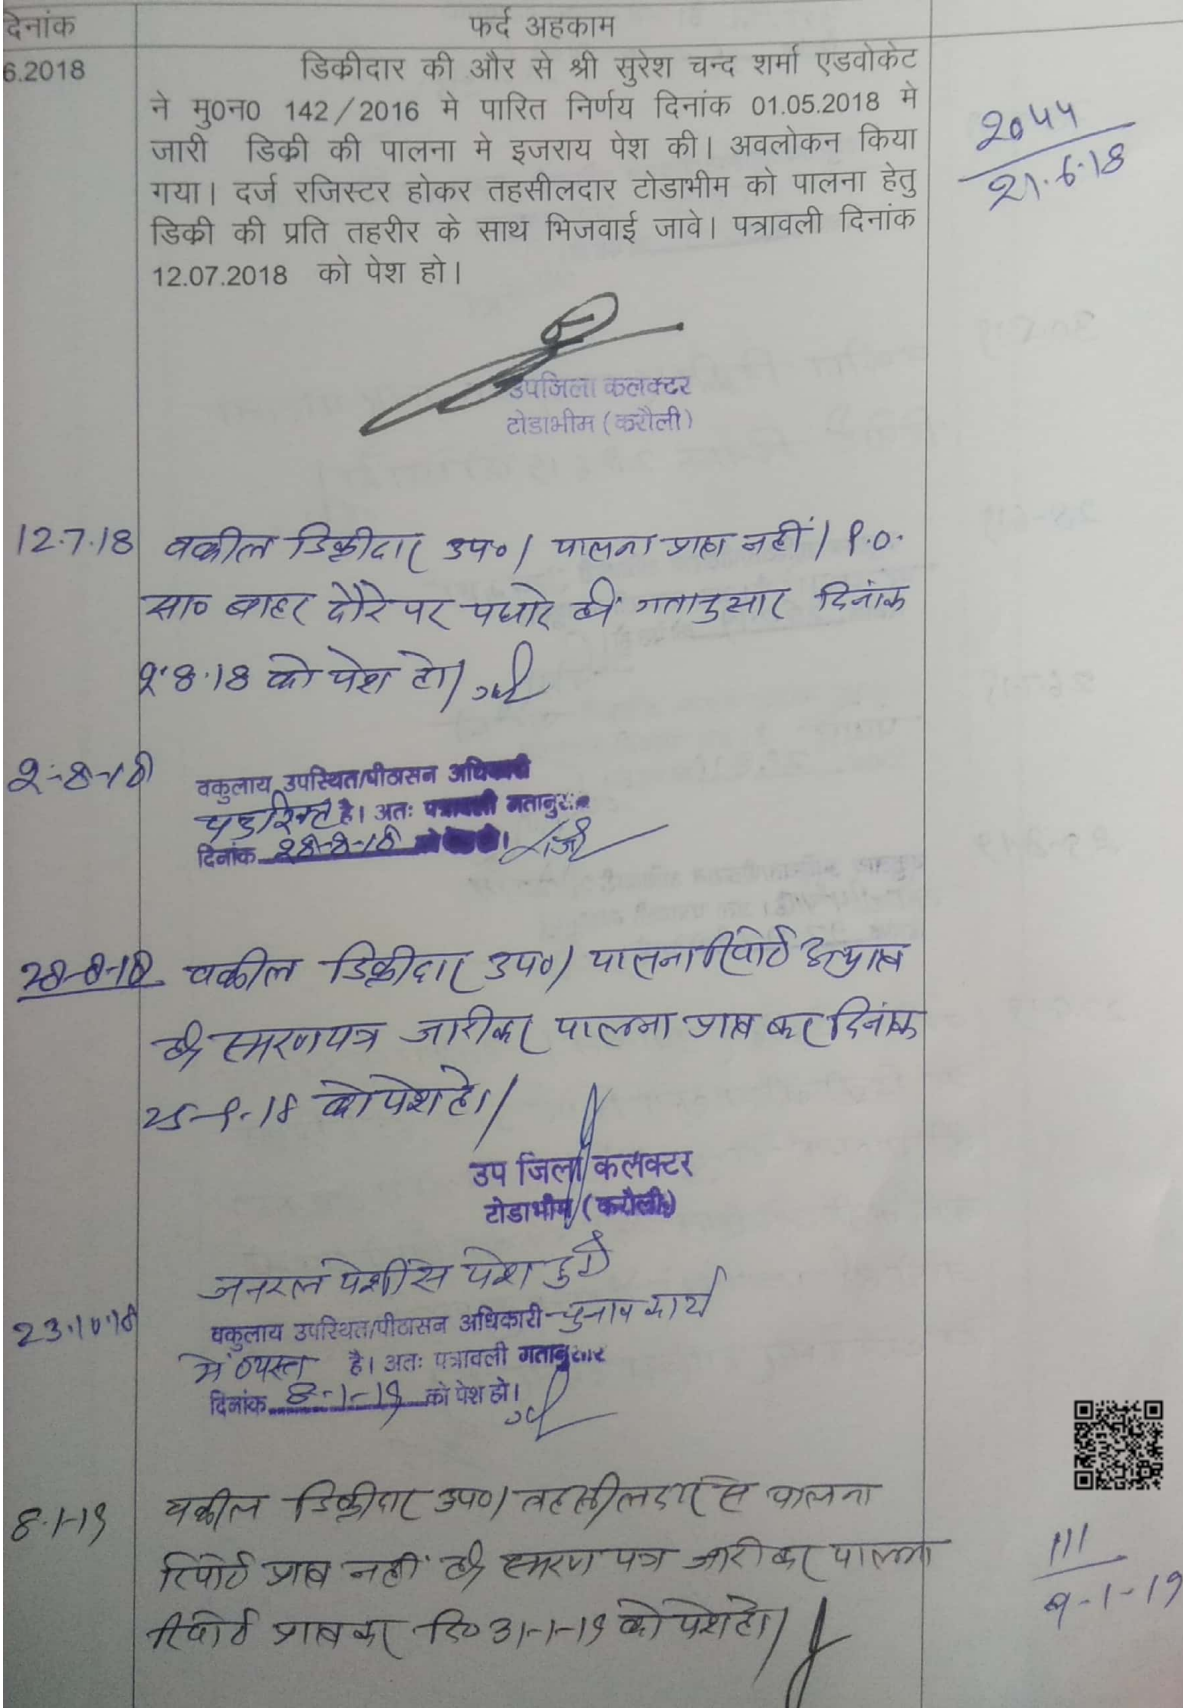 दिनांक
फर्द अहकाम
6.2018
डिकीदार की और से श्री सुरेश चन्द शर्मा एडवोकेट
ने मु0न0 142/2016 मे पारित निर्णय दिनांक 01.05.2018 मे
जारी डिकी की पालना मे इजराय पेश की। अवलोकन किया
गया। दर्ज रजिस्टर होकर तहसीलदार टोडाभीम को पालना हेतु
डिकी की प्रति तहरीर के साथ भिजवाई जावे। पत्रावली दिनांक
12.07.2018 को पेश हो।
2044
21.6.18
उपजिला कलक्टर
टोडाभीम (करौली)
12.7.18 वकील डिक्रीदार उप०। पालना प्राप्त नहीं। P.O.
सा० बाहर दौरे पर पधारे है। गतानुसार दिनांक
2.8.18 को पेश हो।
2-8-18 वकुलाय उपस्थित/पीठासन अधिकारी
पद रिक्त है। अतः पत्रावली गतानुसार
दिनांक 28-8-18 को पेश हो।
28-8-18 वकील डिक्रीदार उप०। पालना रिपोर्ट अप्राप्त
है। स्मरण पत्र जारी कर पालना प्राप्त कर दिनांक
25-9-18 को पेश हो।
उप जिला कलक्टर
टोडाभीम (करौली)
जनरल पेशी से पेश हुई
23.10.18 वकुलाय उपस्थित/पीठासन अधिकारी चुनाव कार्य
में व्यस्त है। अतः पत्रावली गतानुसार
दिनांक 8-1-19 को पेश हो।
8-1-19 वकील डिक्रीदार उप०। तहसीलदार से पालना
रिपोर्ट प्राप्त नहीं है। स्मरण पत्र जारी कर पालना
रिपोर्ट प्राप्त कर दि० 31-1-19 को पेश हो।
111
9-1-19